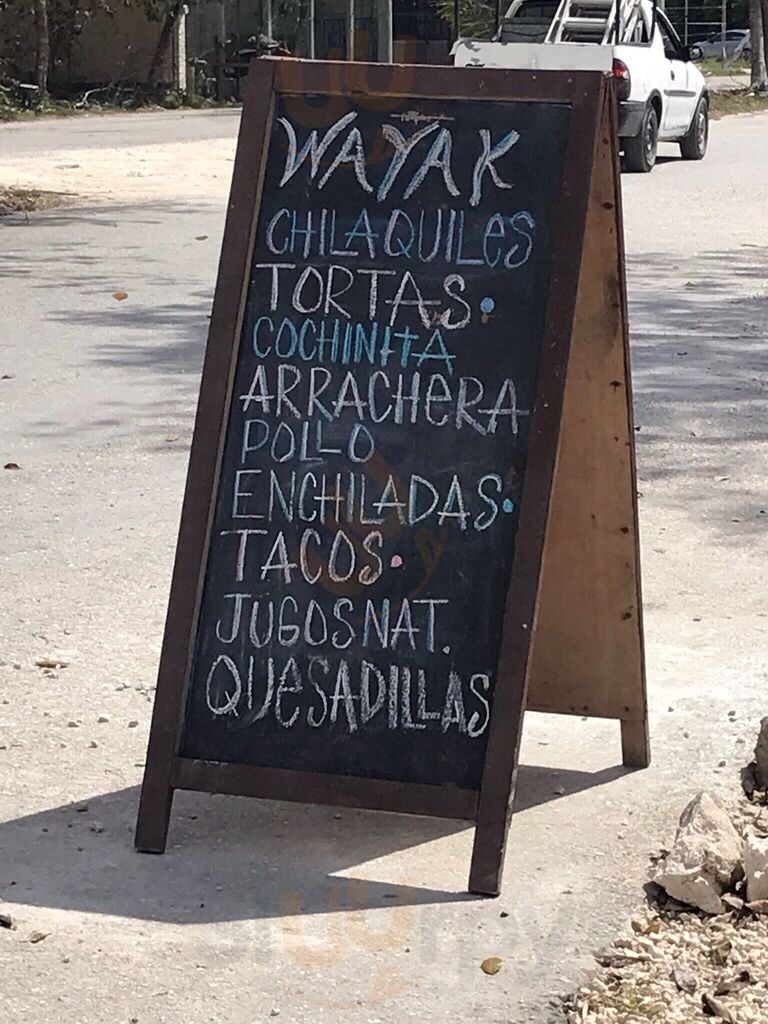 WAYAK
CHILAQUILES
TORTAS.
COCHINITA
ARRACHERA
POLLO
ENCHILADAS.
TACOS.
JUGOS NAT.
QUESADILLAS